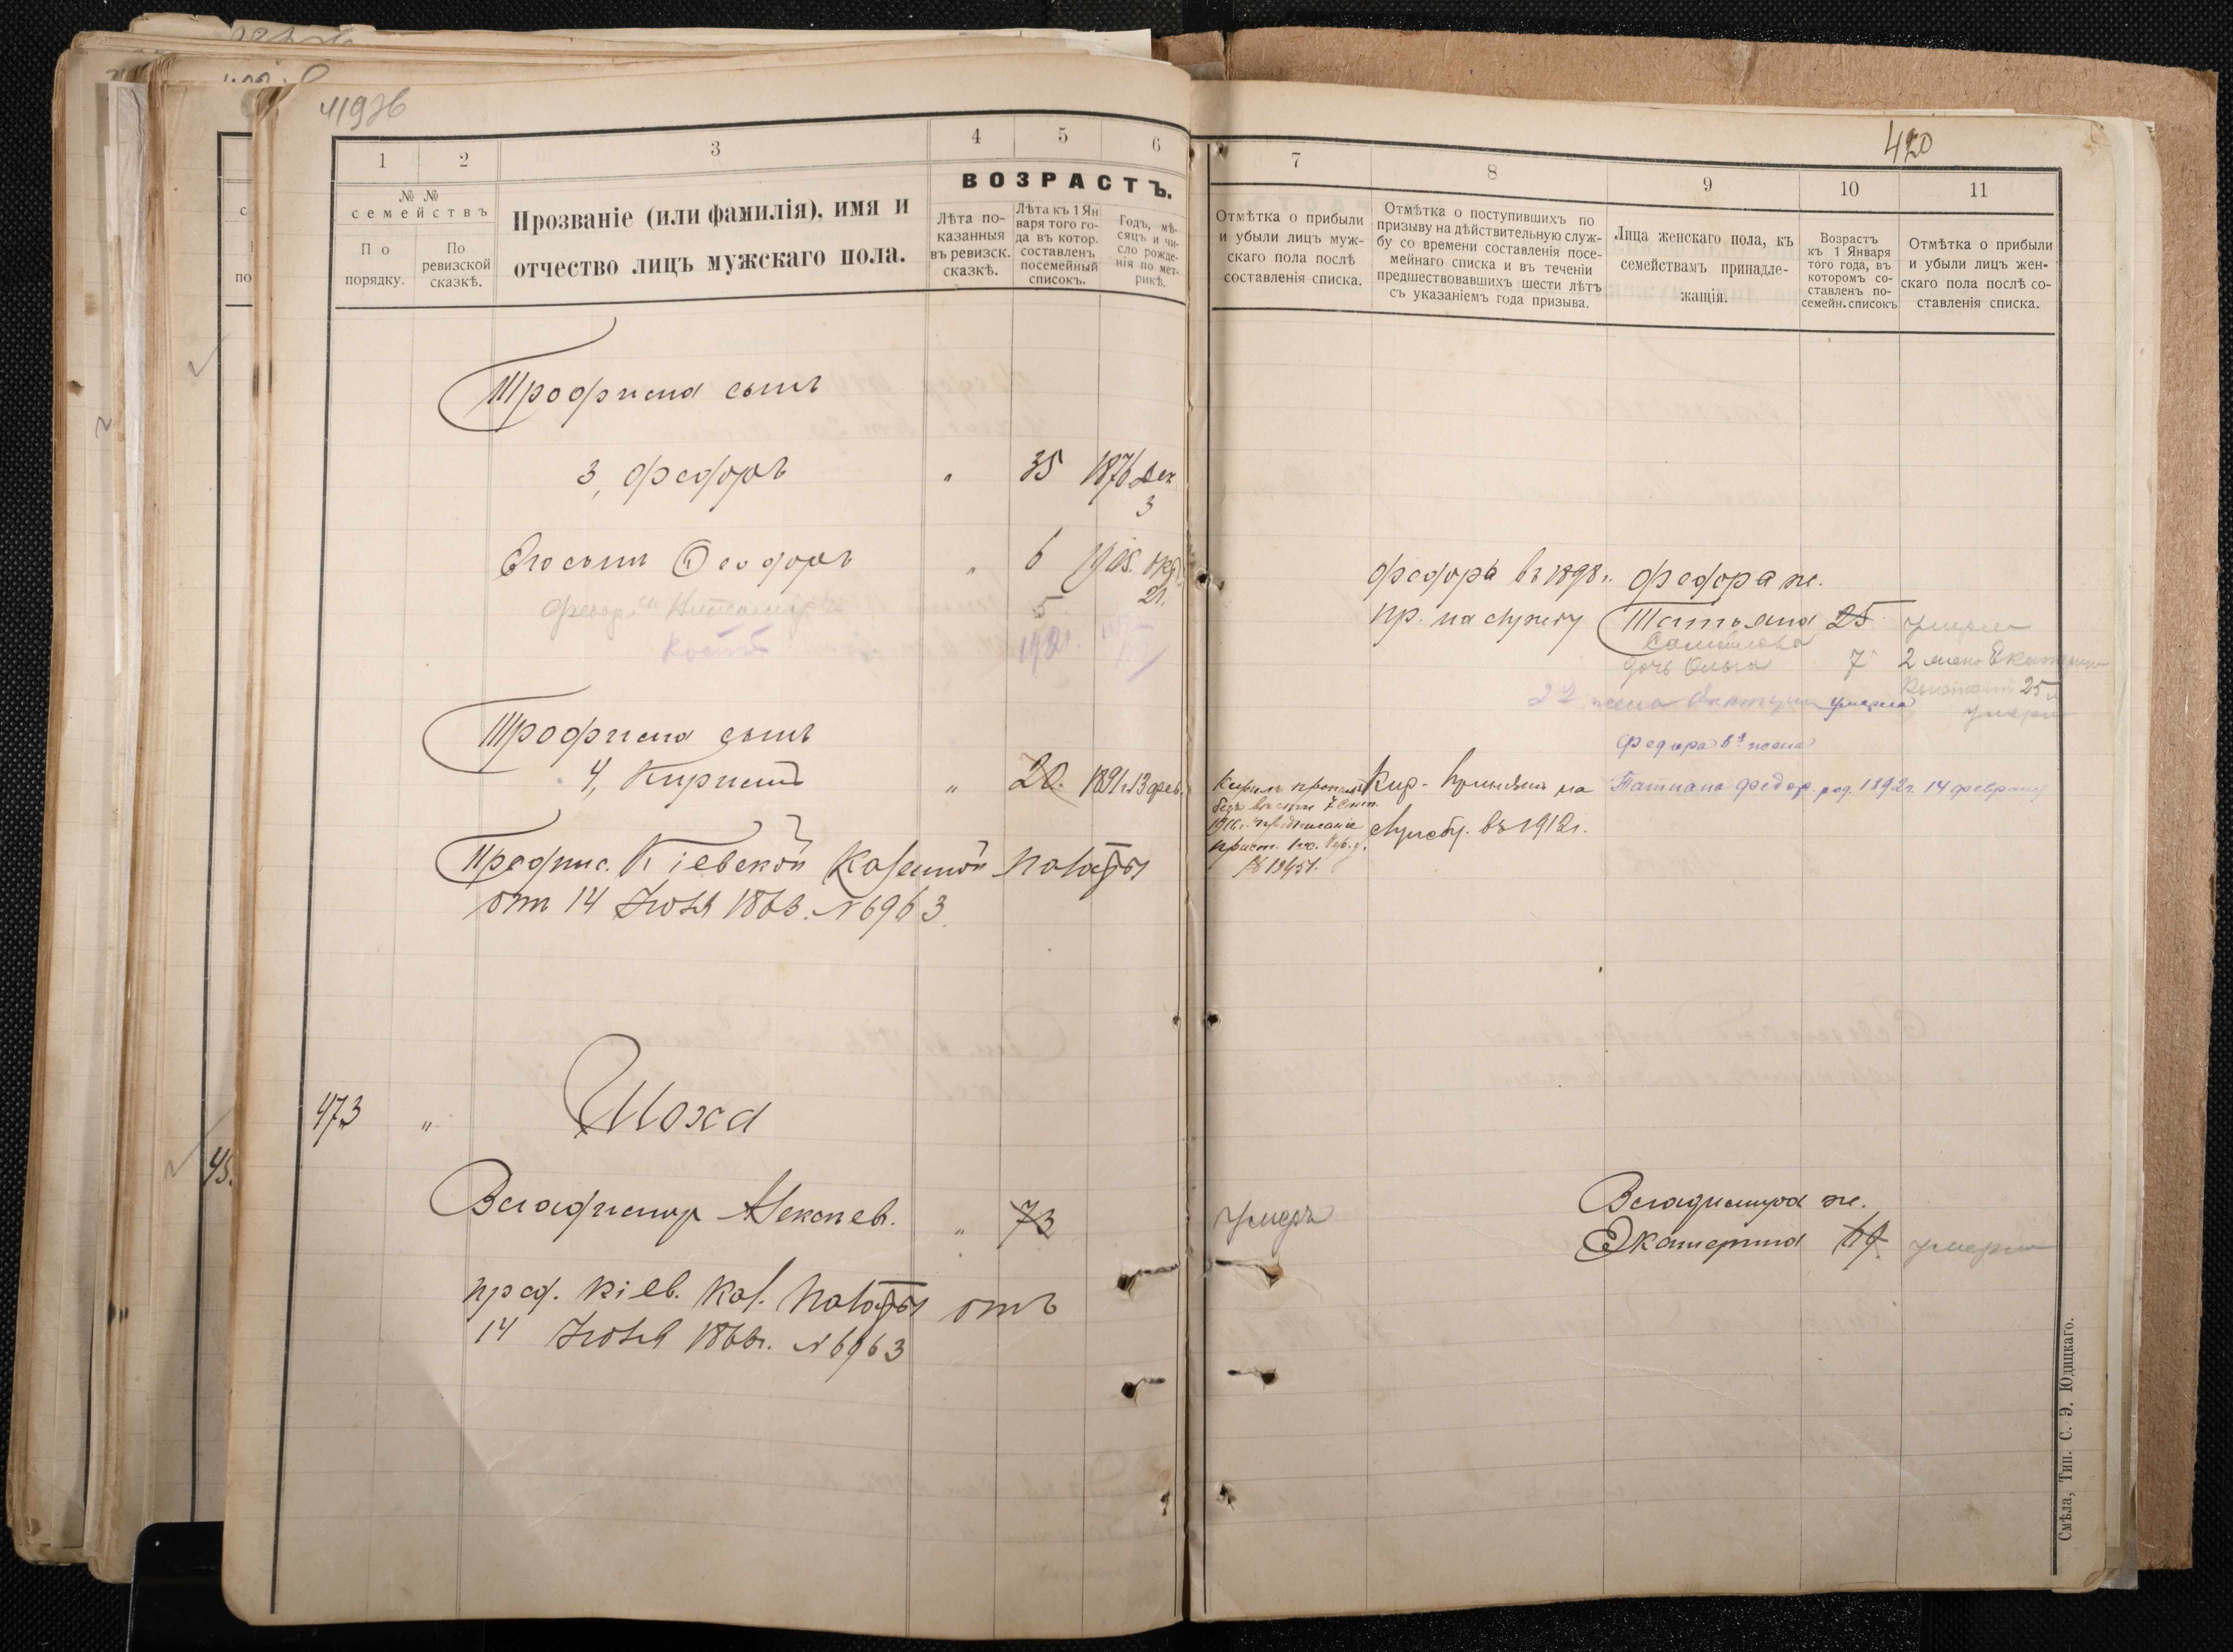 419 об
1
2
3
4
5
6
№ №
семействъ
По порядку.
По ревизской сказкѣ.
Прозваніе (или фамилія), имя и
отчество лицъ мужскаго пола.
ВОЗРАСТЪ.
Лѣта по-
казанныя
въ ревизск.
сказкѣ.
Лѣта къ 1 Ян
варя того го-
да въ котор.
составленъ
посемейный
списокъ.
Годъ, мѣ-
сяцъ и чи-
сло рожде-
нія по мет-
рикѣ.
Трофима сынъ
3, Федоръ " 35 1876 Дек
3
Его сынъ Феодоръ " 6 1905. Окт.
21.
5
1921.
Трофима сынъ
4, Кирилъ " 20. 1891 г. 13 фев.
Предпис. Кіевской Казенной Палаты
отъ 14 Іюля 1863. N 6963.
473 " Моха
Владимир Алексеев. " 73
пред. Кіев. Каз. Палаты отъ
14 Іюля 186 г. N 6963
420
7
8
9
10
11
Отмѣтка о прибыли
и убыли лицъ муж-
скаго пола послѣ
составленія списка.
Отмѣтка о поступившихъ по
призыву на дѣйствительную служ-
бу со времени составленія посе-
мейнаго списка и въ теченіи
предшествовавшихъ шести лѣтъ
съ указаніемъ года призыва.
Лица женскаго пола, къ
семействамъ принадле-
жащія.
Возрастъ
къ 1 Января
того года, въ
которомъ со-
ставленъ по-
семейн. списокъ
Отмѣтка о прибыли
и убыли лицъ жен-
скаго пола послѣ со-
ставленія списка.
Федоръ въ 1898 г. Федора ж.
пр. на службу Татьяна 25 умерла
дочь Ольга 7 2 жена Екатерина
25
2я жена умерла умерла
Федора жена
Татиана Федор. род. 1892 г. 14 февраля
Кирилъ пропалъ
безъ вести 7 Сент.
1916 г. предписаніе
№ 19451.
Кир. Принятъ на
службу. въ 1912 г.
умеръ
Владимира ж.
Екатерина 69 умерла
Смѣла, Тип. С. Э. Юдицкаго.
45.